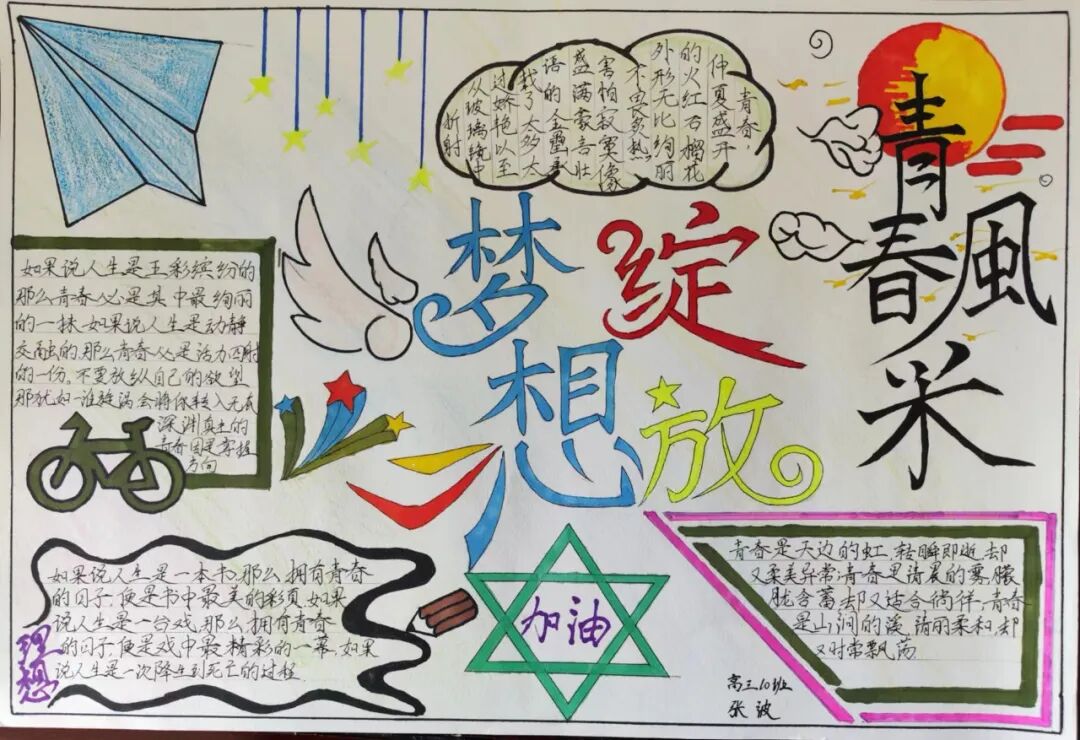 青春，
仲夏盛开
的火红石榴花
外形无比绚丽
不畏炙热
害怕寂寞像
盛满豪言壮
语的金罍承
载了太多太
过娇艳以至
从玻璃镜中
折射
青春
風采
梦想
绽放
如果说人生是五彩缤纷的
那么青春必是其中最绚丽
的一抹.如果说人生是动静
交融的,那么青春必是活力四射
的一份。不要放纵自己的欲望
那犹如一谁旋涡会将你转入无底
深渊真土的
青春因是掌握
方向
如果说人生是一本书,那么拥有青春
的日子,便是书中最美的彩页.如果
说人生是一台戏,那么拥有青春
的日子便是戏中最精彩的一幕.如果
说人生是一次降生到死亡的过程
理想
加油
青春是天边的虹,转瞬即逝,却
又柔美异常;青春是清晨的雾,朦
胧含蓄却又适合徜徉,青春
是山涧的溪,清丽柔和,却
又时常飘荡
高三10班
张波